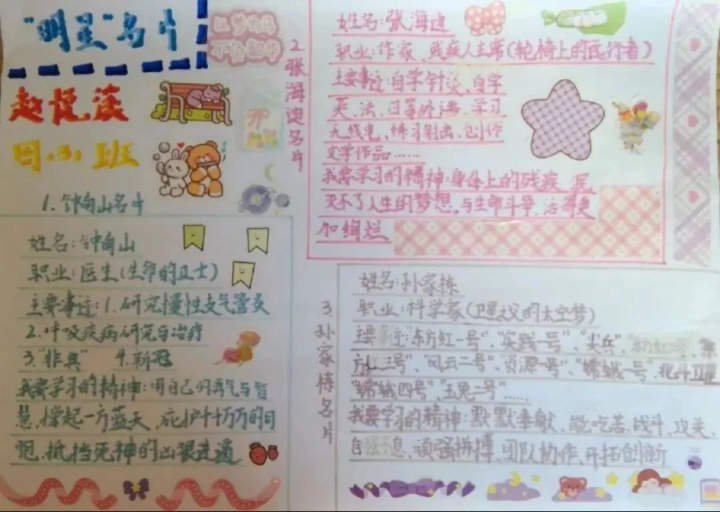 "明星"名片
赵悦淇
四.(3)班
1.钟南山名片
姓名:钟南山
职业:医生(生命的卫士)
主要事迹:1.研究慢性支气管炎
2.呼吸疾病研究与治疗
3."非典" 4.新冠
我要学习的精神:用自己的勇气与智
慧,撑起一方蓝天,庇护千千万万的同
胞,抵挡死神的凶狠进逼
2.张海迪名片
姓名:张海迪
职业:作家、残疾人主席(轮椅上的远行者)
主要事迹:自学针灸、自学
英、法、日等外语、学习
无线电、练习射击、创作
文学作品……
我要学习的精神:身体上的残疾,泯
灭不了人生的梦想。与生命斗争,活得更
加绚烂
3.孙家栋名片
姓名:孙家栋
职业:科学家(卫星之父的太空梦)
主要事迹:"东方红一号"、"实践一号"、"尖兵"、
"风云二号"、"资源一号"、"嫦娥一号"、北斗卫星
"嫦娥四号"、"玉兔二号"……
我要学习的精神:默默奉献、能吃苦、战斗、攻关、
自强不息、顽强拼搏、团队协作、开拓创新